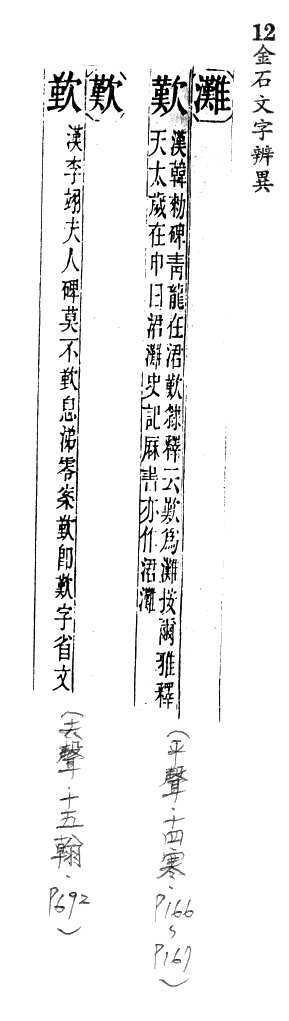 12金石文字辨異
灘
歎 漢韓勑碑青龍在涒歎隸釋云歎為灘按爾雅釋
天太歲在申曰涒灘史記厤書亦作涒灘
(平聲·十四寒·P166~P167)
歎
歎 漢李翊夫人碑莫不歎息涕零案歎即歎字省文
(去聲·十五翰·P692)